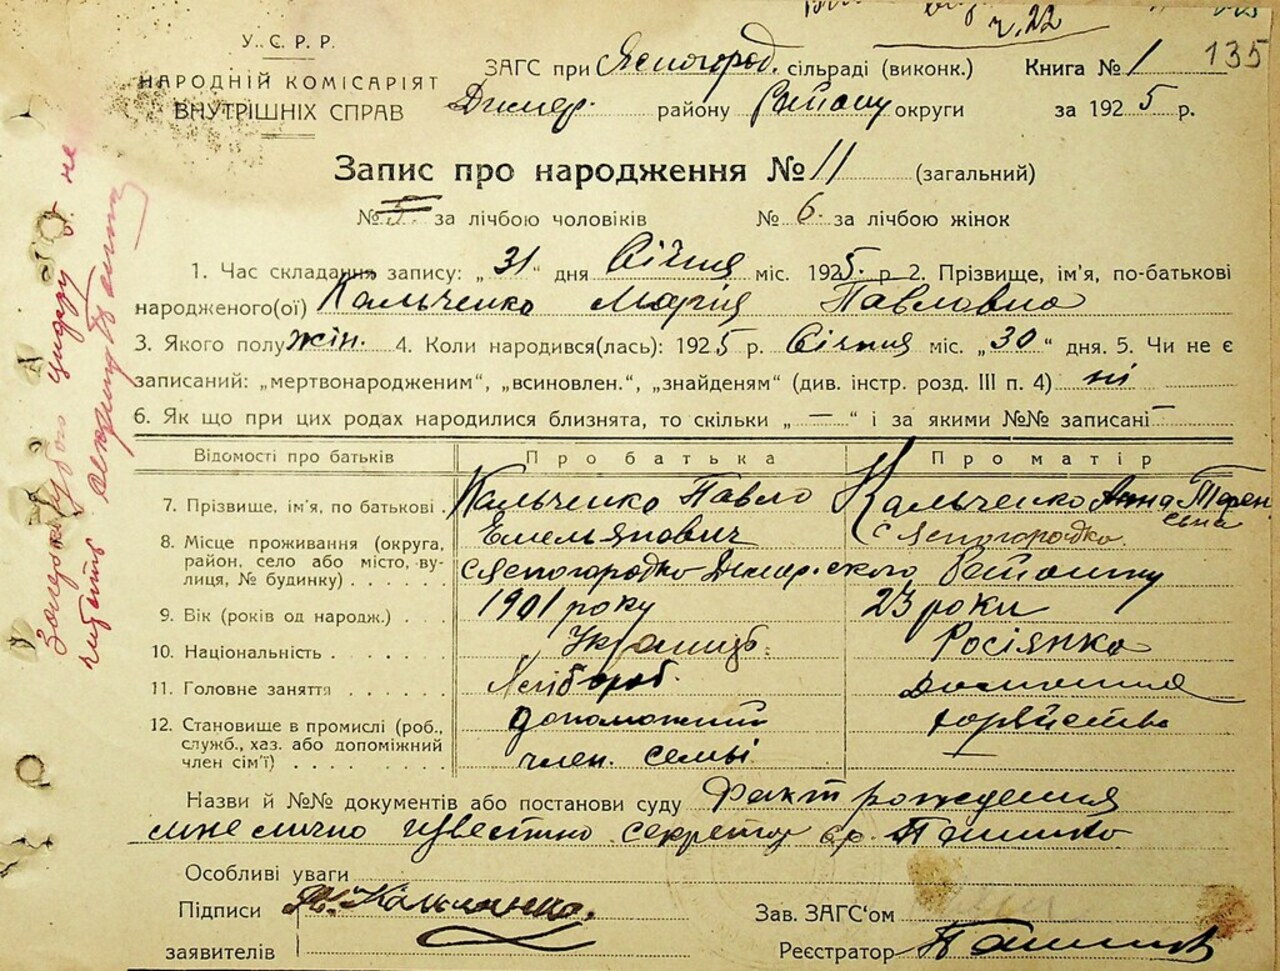 ч. 22
135
У.С.Р.Р.
НАРОДНІЙ КОМІСАРІЯТ
ВНУТРІШНІХ СПРАВ
ЗАГС при Ясногород. сільраді (виконк.) Книга № 1
Димер. району округи за 1925 р.
Запис про народження № 11 (загальний)
№ 5 за лічбою чоловіків № 6. за лічбою жінок
1. Час складання запису: „31" дня Січня міс. 1925. р 2. Прізвище, ім'я, по-батькові
народженого(ої) Кальченко Марія Павловна
3. Якого полу жін. 4. Коли народився(лась): 1925 р. Січня міс. „30" дня. 5. Чи не є
записаний: „мертвонародженим", „всиновлен.", „знайденям" (див. інстр. розд. III п. 4) ні
6. Як що при цих родах народилися близнята, то скільки „—" і за якими №№ записані —
Відомості про батьків Про батька Про матір
7. Прізвище, ім'я, по батькові . Кальченко Павло Емельянович Кальченко Анна Терен
сьна
8. Місце проживання (округа, район, село або місто, вулиця, № будинку) с Ясногородка
с Ясногородка Димерского
9. Вік (років од народж.) . . 1901 року 23 роки
10. Національність . . . . . Українць. Росіянка
11. Головне заняття . . . . . . Хлібороб. Домашня
12. Становище в промислі (роб., служб., хаз. або допоміжний член сім'ї) . . . . . . . . допоможний член. семьі
Назви й №№ документів або постанови суду Факт рождения
мне лично известно секретар Пашко
Особливі уваги
Підписи Кальченко.
заявителів
Зав. ЗАГС'ом
Реєстратор